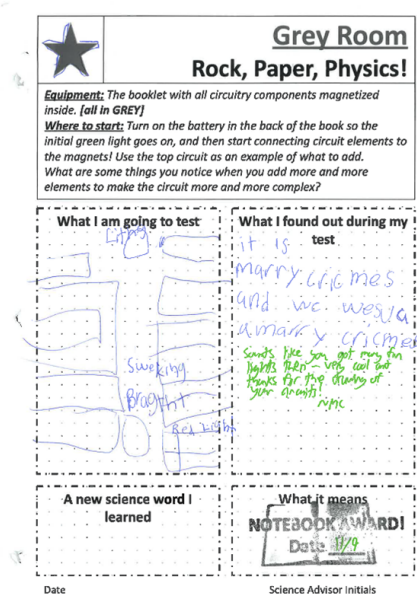 Grey Room
Rock, Paper, Physics!
Equipment: The booklet with all circuitry components magnetized
inside. [all in GREY]
Where to start: Turn on the battery in the back of the book so the
initial green light goes on, and then start connecting circuit elements to
the magnets! Use the top circuit as an example of what to add.
What are some things you notice when you add more and more
elements to make the circuit more and more complex?
What I am going to test
Sweking
Braght
Red Light
What I found out during my
test
it is
marry cricmes
and we
a marry cricmes
Sounds like you got many fun
lights then - very cool and
thanks for the drawing of
your circuits!
A new science word I
learned
What it means
NOTEBOOK AWARD!
Date 11/9
Date
Science Advisor Initials